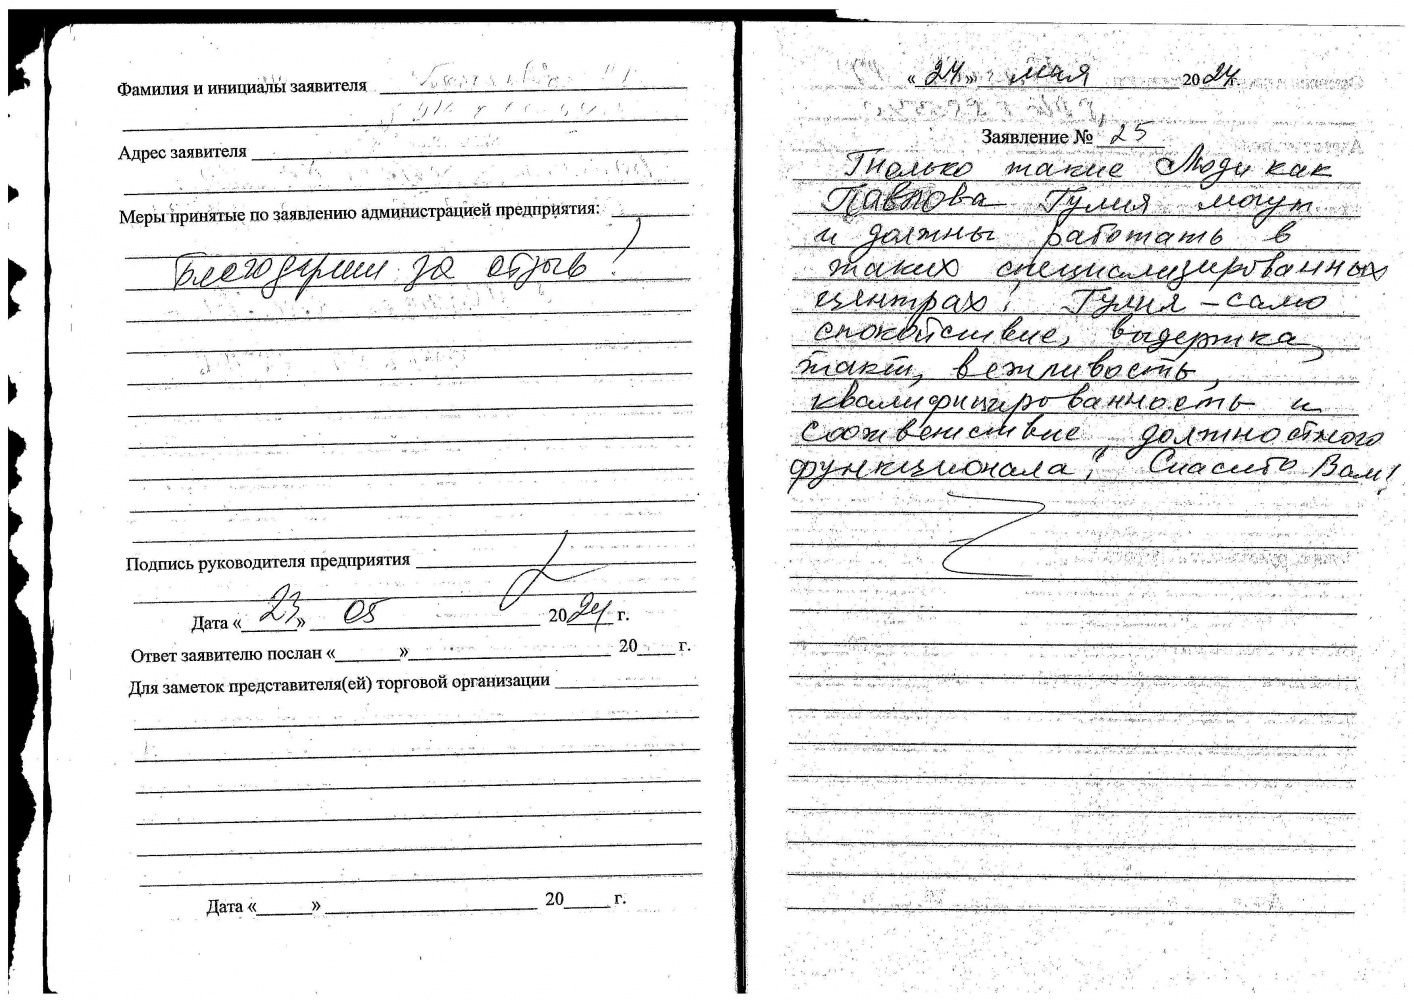 Фамилия и инициалы заявителя
Адрес заявителя
Меры принятые по заявлению администрацией предприятия:
Благодарим за отзыв!
Подпись руководителя предприятия
Дата «23» 05 2024 г.
Ответ заявителю послан «» 20 г.
Для заметок представителя(ей) торговой организации
Дата «» 20 г.
«24» мая 2024
Заявление № 25
Только такие Люди как
Павлова Гулия могут
и должны работать в
таких специализированных
центрах! Гулия – само
спокойствие, выдержка,
такт, вежливость,
квалифицированность и
соответствие должностного
функционала! Спасибо Вам!